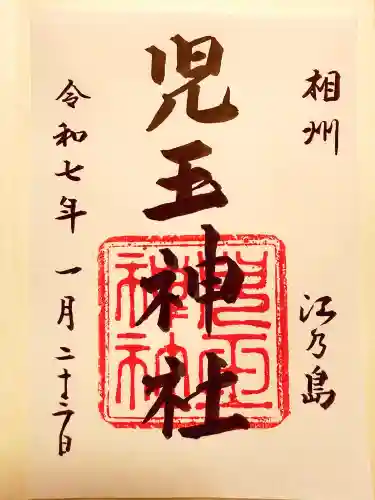 相州
江乃島
児玉神社
児玉神社
令和七年 一月二十三日